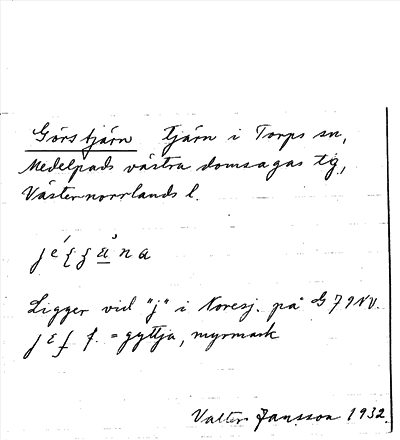 Görstjärn tjärn i Torps sn,
Medelpads västra domsagas tg,
Västernorrlands l.
Ligger vid "j" i Koresj. på G 79 NV.
f. = gyttja, myrmark
Valter Jansson 1932.